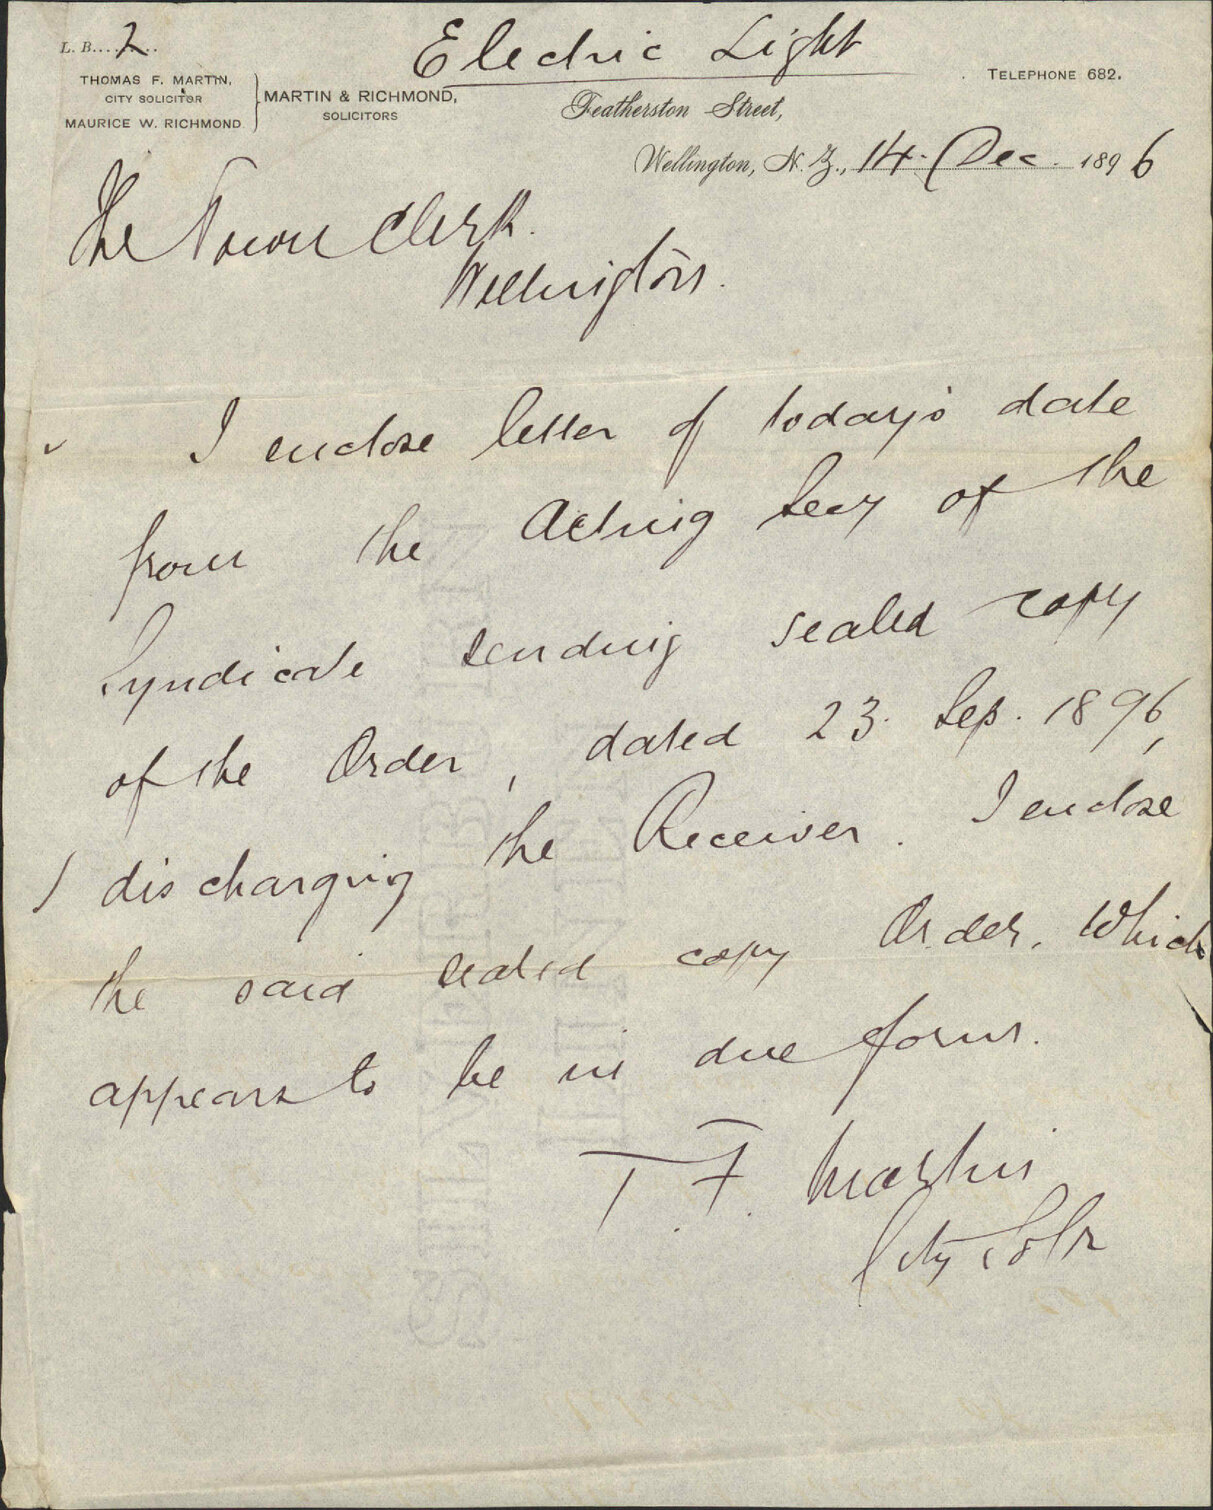 L. B....2..
Electric Light
THOMAS F. MARTIN,
CITY SOLICITOR
MAURICE W. RICHMOND
MARTIN & RICHMOND,
SOLICITORS
TELEPHONE 682.
Featherston Street,
Wellington, N. Z., 14. Dec. 1896
The Town Clerk.
Wellington.
I enclose letter of today's date
from the Acting Secy of the
Syndicate sending sealed copy
of the Order, dated 23. Sep. 1896,
discharging the Receiver. I enclose
the said sealed copy Order, which
appears to be in due form.
T. F. Martin
City Solr